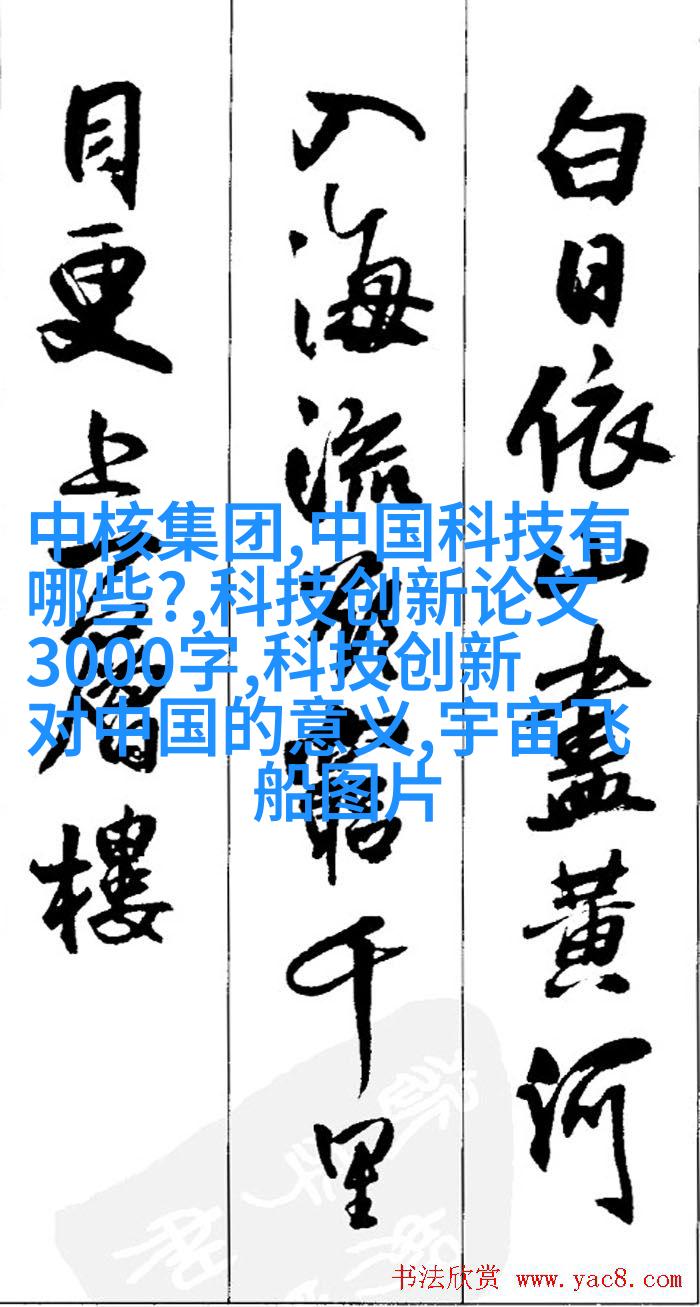 白日依山盡黄河
入海流欲窮千里
目更上一層樓
中核集团,中国科技有
哪些?,科技创新论文
3000字,科技创新
对中国的意义,宇宙飞
船图片
书法欣赏 www.yac8.com